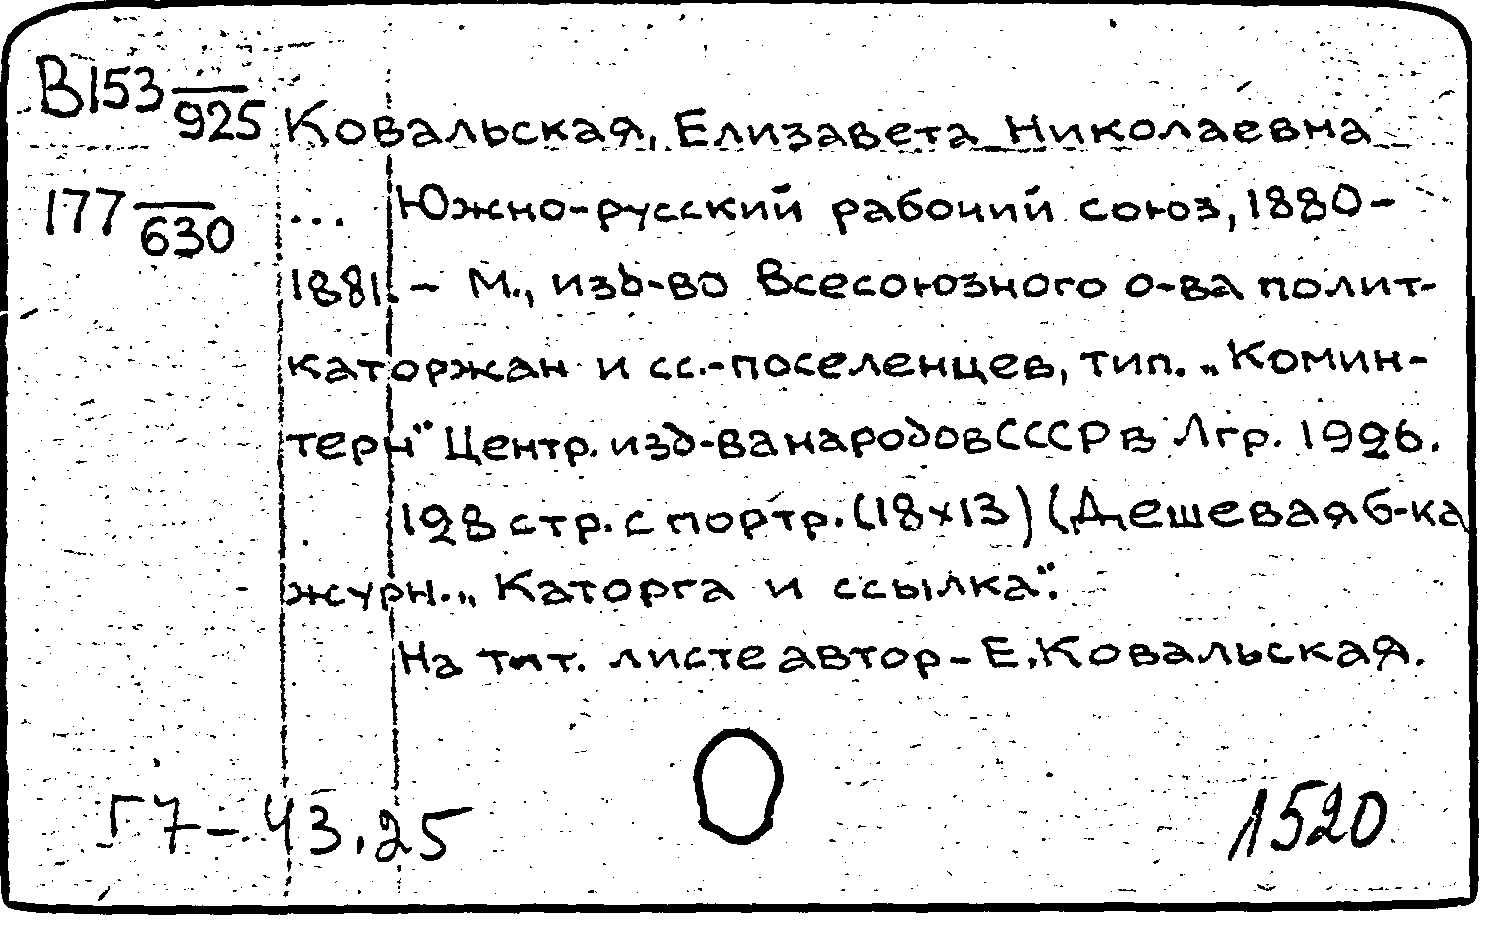 В153/925
Ковальская, Елизавета Николаевна
177/630
... Южно-русский рабочий союз, 1880-
1881. - М., изд-во Всесоюзного о-ва полит-
каторжан и сс.-поселенцев, тип. „Комин-
терн" Центр. изд-ва народов СССР в Лгр. 1926.
128 стр. с портр. (18х13) (Дешевая б-ка
журн. „Каторга и ссылка".
На тит. листе автор - Е. Ковальская.
Г7-43.25
1520